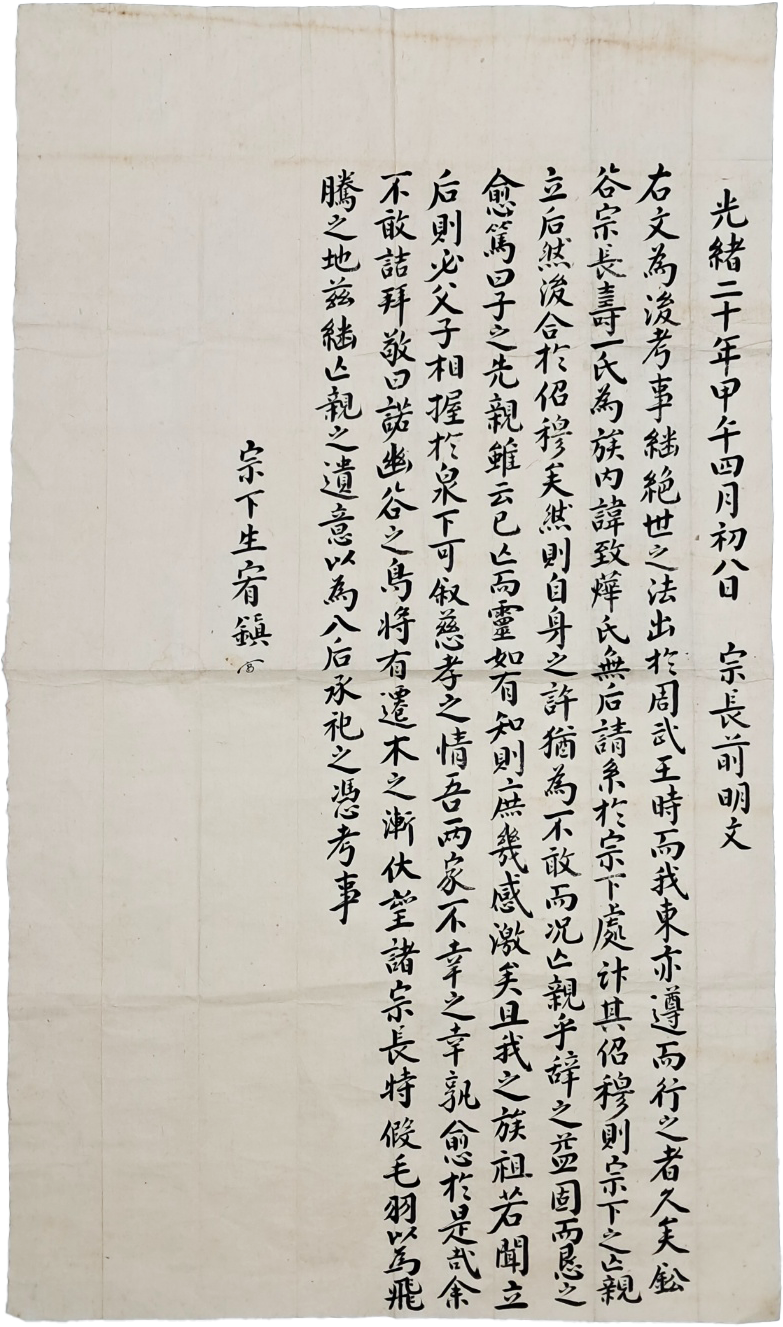 光緒二十年甲午四月初八日 宗長前明文
右文為後考事繼絶世之法出於周武王時而我東亦遵而行之者久矣鈆
谷宗長壽一氏為族內諱致燁氏無后請系於宗下處計其佋穆則宗下之亡親
立后然後合於佋穆矣然則自身之許猶為不敢而况亡親乎辞之益固而恳之
愈篤曰子之先親雖云已亡而靈如有知則庶幾感激矣且我之族祖若聞立
后則必父子相握於泉下可叙慈孝之情吾两家不幸之幸孰愈於是哉余
不敢詰拜敬曰諾幽谷之鳥将有遷木之漸伏望諸宗長特假毛羽以為飛
騰之地兹繼亡親之遺意以為入后承祀之憑考事
宗下生宥鎭